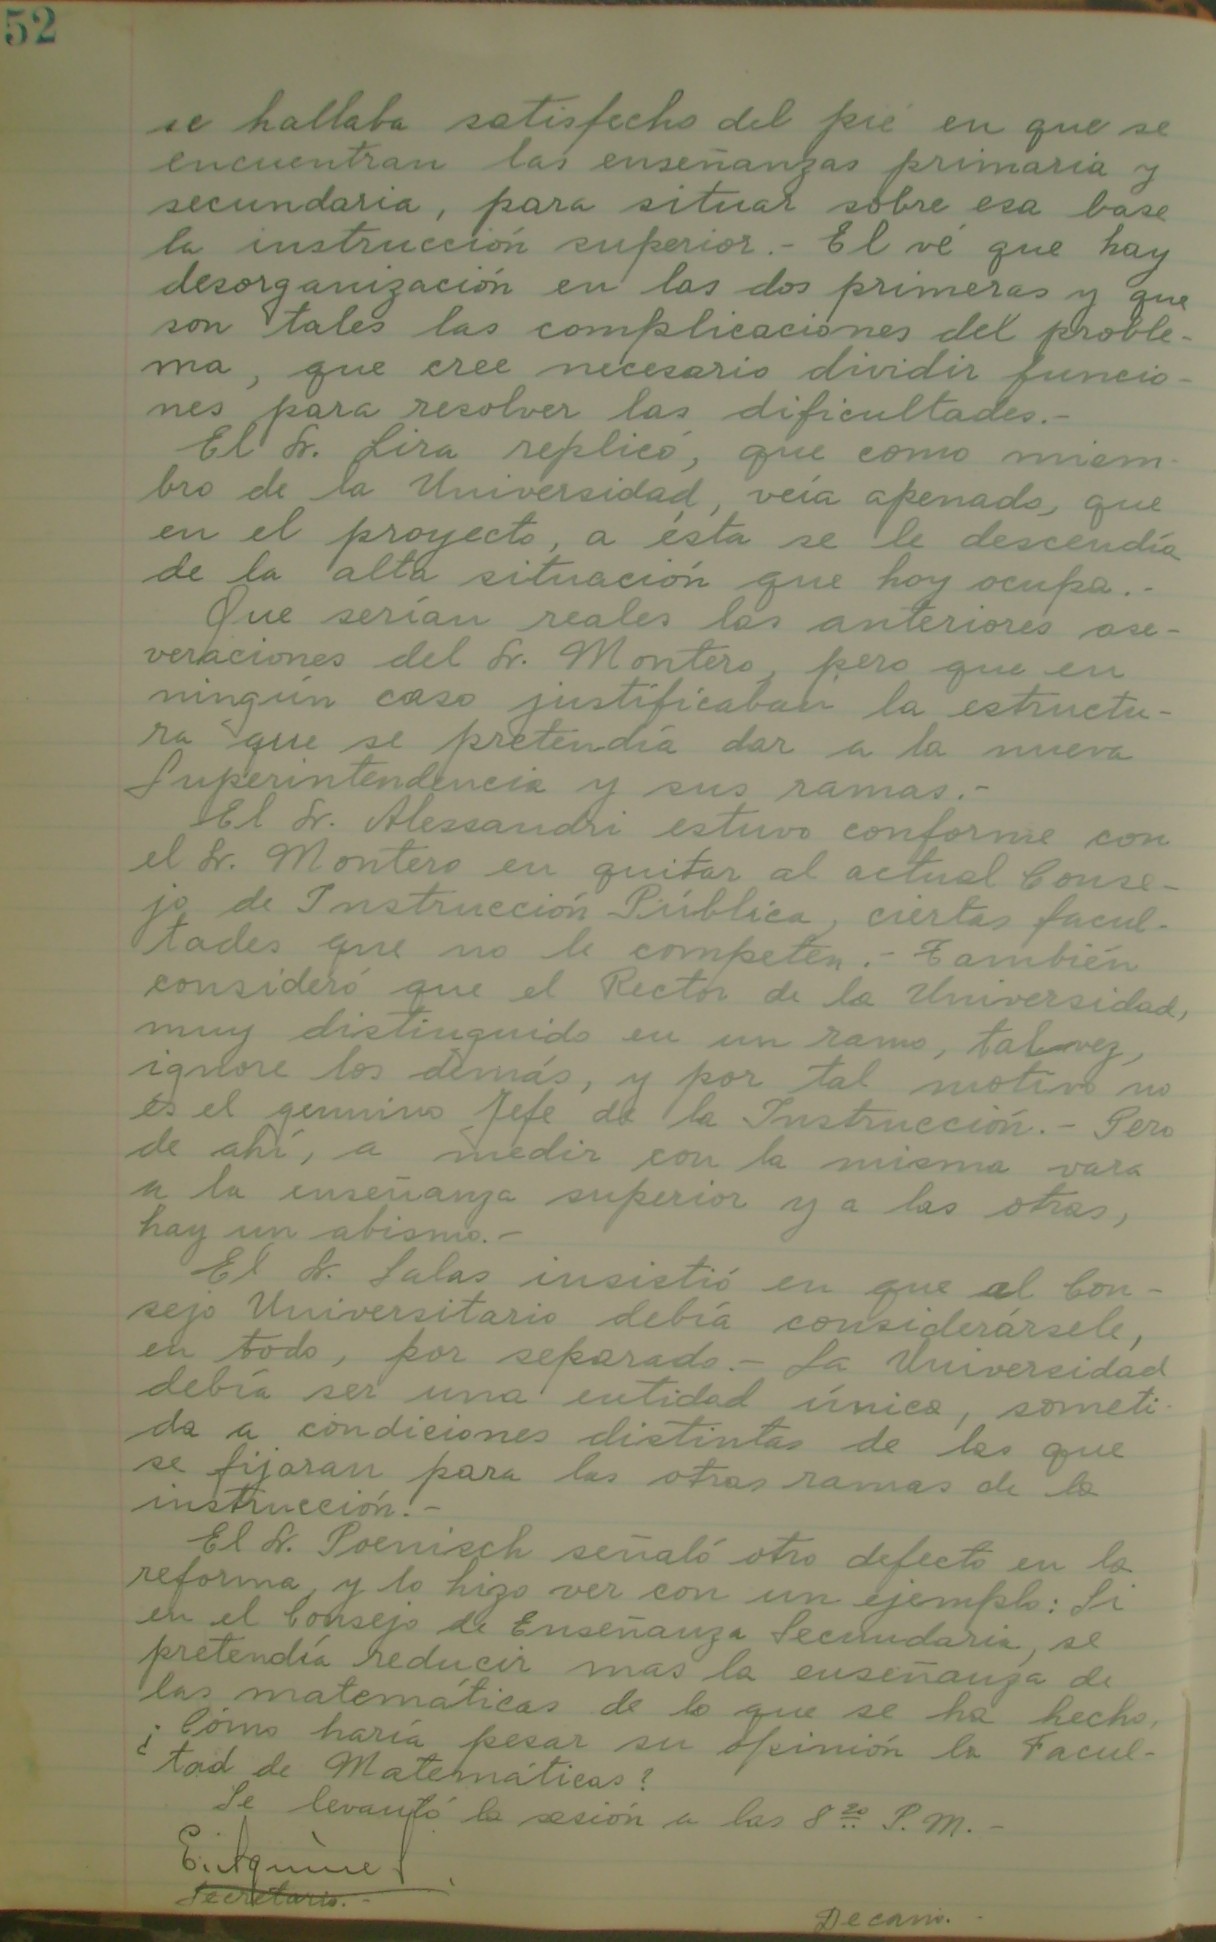 52
se hallaba satisfecho del pié en que se
encuentran las enseñanzas primaria y
secundaria, para situar sobre esa base
la instrucción superior.- El vé que hay
desorganización en las dos primeras y que
son tales las complicaciones del proble-
ma, que cree necesario dividir funcio-
nes para resolver las dificultades.-
El Sr. Lira replicó, que como miem-
bro de la Universidad, veía apenado, que
en el proyecto, a ésta se le descendía
de la alta situación que hoy ocupa.-
Que serían reales las anteriores ase-
veraciones del Sr. Montero, pero que en
ningún caso justificaban la estructu-
ra que se pretendía dar a la nueva
Superintendencia y sus ramas.-
El Sr. Alessandri estuvo conforme con
el Sr. Montero en quitar al actual Conse-
jo de Instrucción Pública, ciertas facul-
tades que no le competen.- También
consideró que el Rector de la Universidad,
muy distinguido en un ramo, talvez,
ignore los demás, y por tal motivo no
es el genuino Jefe de la Instrucción.- Pero
de ahí, a medir con la misma vara
a la enseñanza superior y a las otras,
hay un abismo.-
El Sr. Salas insistió en que al Con-
sejo Universitario debía considerársele,
en todo, por separado.- La Universidad
debía ser una entidad única, someti-
da a condiciones distintas de las que
se fijaran para las otras ramas de la
instrucción.-
El Sr. Poenisch señaló otro defecto en la
reforma, y lo hizo ver con un ejemplo: Si
en el Consejo de Enseñanza Secundaria, se
pretendía reducir mas la enseñanza de
las matemáticas de lo que se ha hecho,
¿Cómo haría pesar su opinión la Facul-
tad de Matemáticas?
Se levantó la sesión a las 8 20 P.M.-
Secretario.-
Decano.-